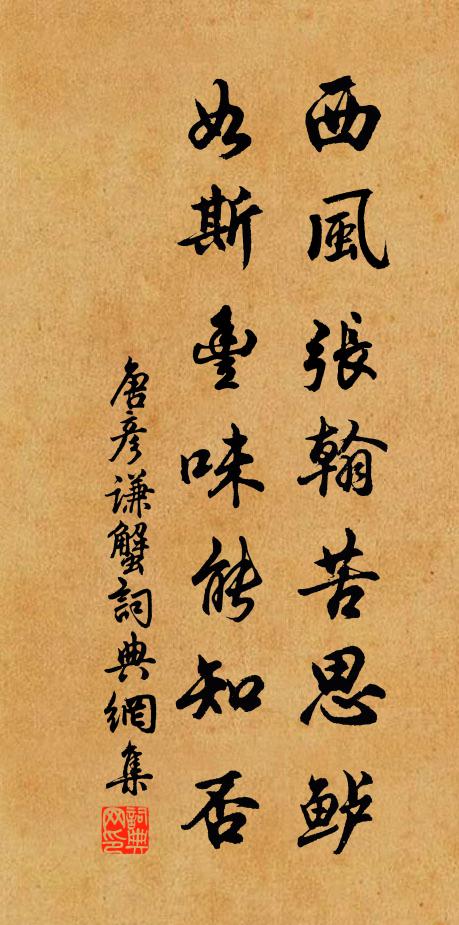 西風張翰苦思鲈
如斯豐味能知否
唐彥謙蟹詞典網集
詞典网印